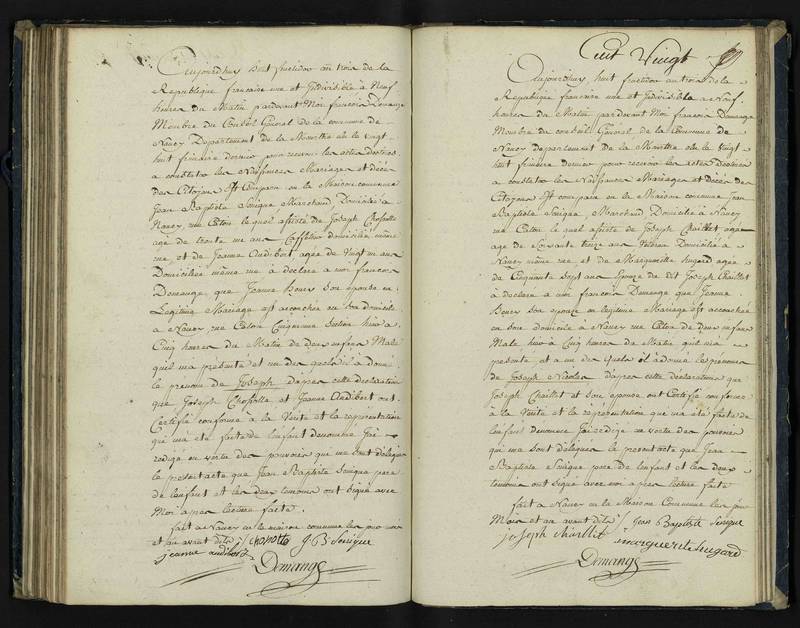 Aujourdhuy huit fructidor an trois de la
Republique française une et Indivisible à Neuf
heures du Matin pardevant Moi françois Domange
Membre du Conseil General de la commune de
Nancy Departement de la Meurthe elu le vingt
huit frimaire dernier pour recevoir les actes destinés
a constater les Naissances Mariages et décès
des Citoyens Est comparu en la Maison commune
Jean Baptiste Senique Marchand, Domicilié à
Nancy rue Caton lequel assisté de Joseph
age de trente un ans, Caffetier domicilié même
rue et de Jeanne Audibert agée de Vingt un ans
Domiciliée même rue à déclaré a moi francois
Domange, que Jeanne Houry son épouse en
Legitime Mariage est accouchée en son domicile
a Nancy rue Caton Cinquieme Section hier a
Cinq heures du Matin de deux enfans Males
quil ma présenté et un des quels il à donné
le prenom de Joseph dapres cette déclaration
que Joseph et Jeanne Audibert ont
Certifié conforme à la Verité et la représentation
qui ma été faite de lenfant denommé Jai
redigé en vertu des pouvoirs qui me sont délégués
le present acte que Jean Baptiste Senique pere
de lenfant et les deux temoins ont signé avec
Moi apres lecture faite.
fait a Nancy en la maison commune les jour mois
et an avant dits J. B Senique
jeanne audibert
Domange
Cent Vingt
Aujourdhuy huit fructidor an trois de la
Republique française une et Indivisible a Neuf
heures du Matin pardevant Moi françois Domange
Membre du conseil General de la Commune de
Nancy departement de la Meurthe elu le Vingt
huit frimaire dernier pour recevoir les actes destinés
a constater les Naissances Mariages et décès des
Citoyens Est comparu en la Maison commune Jean
Baptiste Senique, Marchand Domicilié a Nancy
rue Caton le quel assisté de Joseph Chaillet agé
age de soixante treize ans Domicilié à
Nancy même rue et de Marguerite hugard agée
de Cinquante Sept ans épouse de dit Joseph Chaillet
à declaré a moi francois Domange que Jeanne
Houry son epouse en legitime Mariage est accouchée
en son domicile a Nancy rue Caton de deux enfans
Male hier à Cinq heures du Matin quil ma
presenté et a un des quels il à donné les prénoms
de Joseph Nicolas dapres cette déclaration que
Joseph Chaillet et son épouse ont Certifié conforme
à la Verité et la representation qui ma été faite de
lenfant denommé Jai redigé en vertu des pouvoirs
qui me sont délégués le present acte que Jean
Baptiste Senique pere de lenfant et les deux
temoins ont signé avec moi apres lecture faite
fait a Nancy en la Maison Commune les jour
Mois et an avant dits Jean Baptiste Senique
joseph chaillet marguerite hugard
Domange